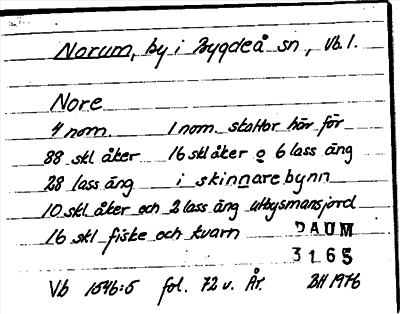 Norum, by i Bygdeå sn, Vb l.
Nore
4 nom. 1 nom. skattar här för
88 skl åker 16 skl åker o 6 lass äng
28 lass äng i skinnarebynn
10 skl åker och 2 lass äng utbysmansjord
16 skl fiske och kvarn DAUM
3165
Vb 1546:5 fol. 72 v. År. BH 1976